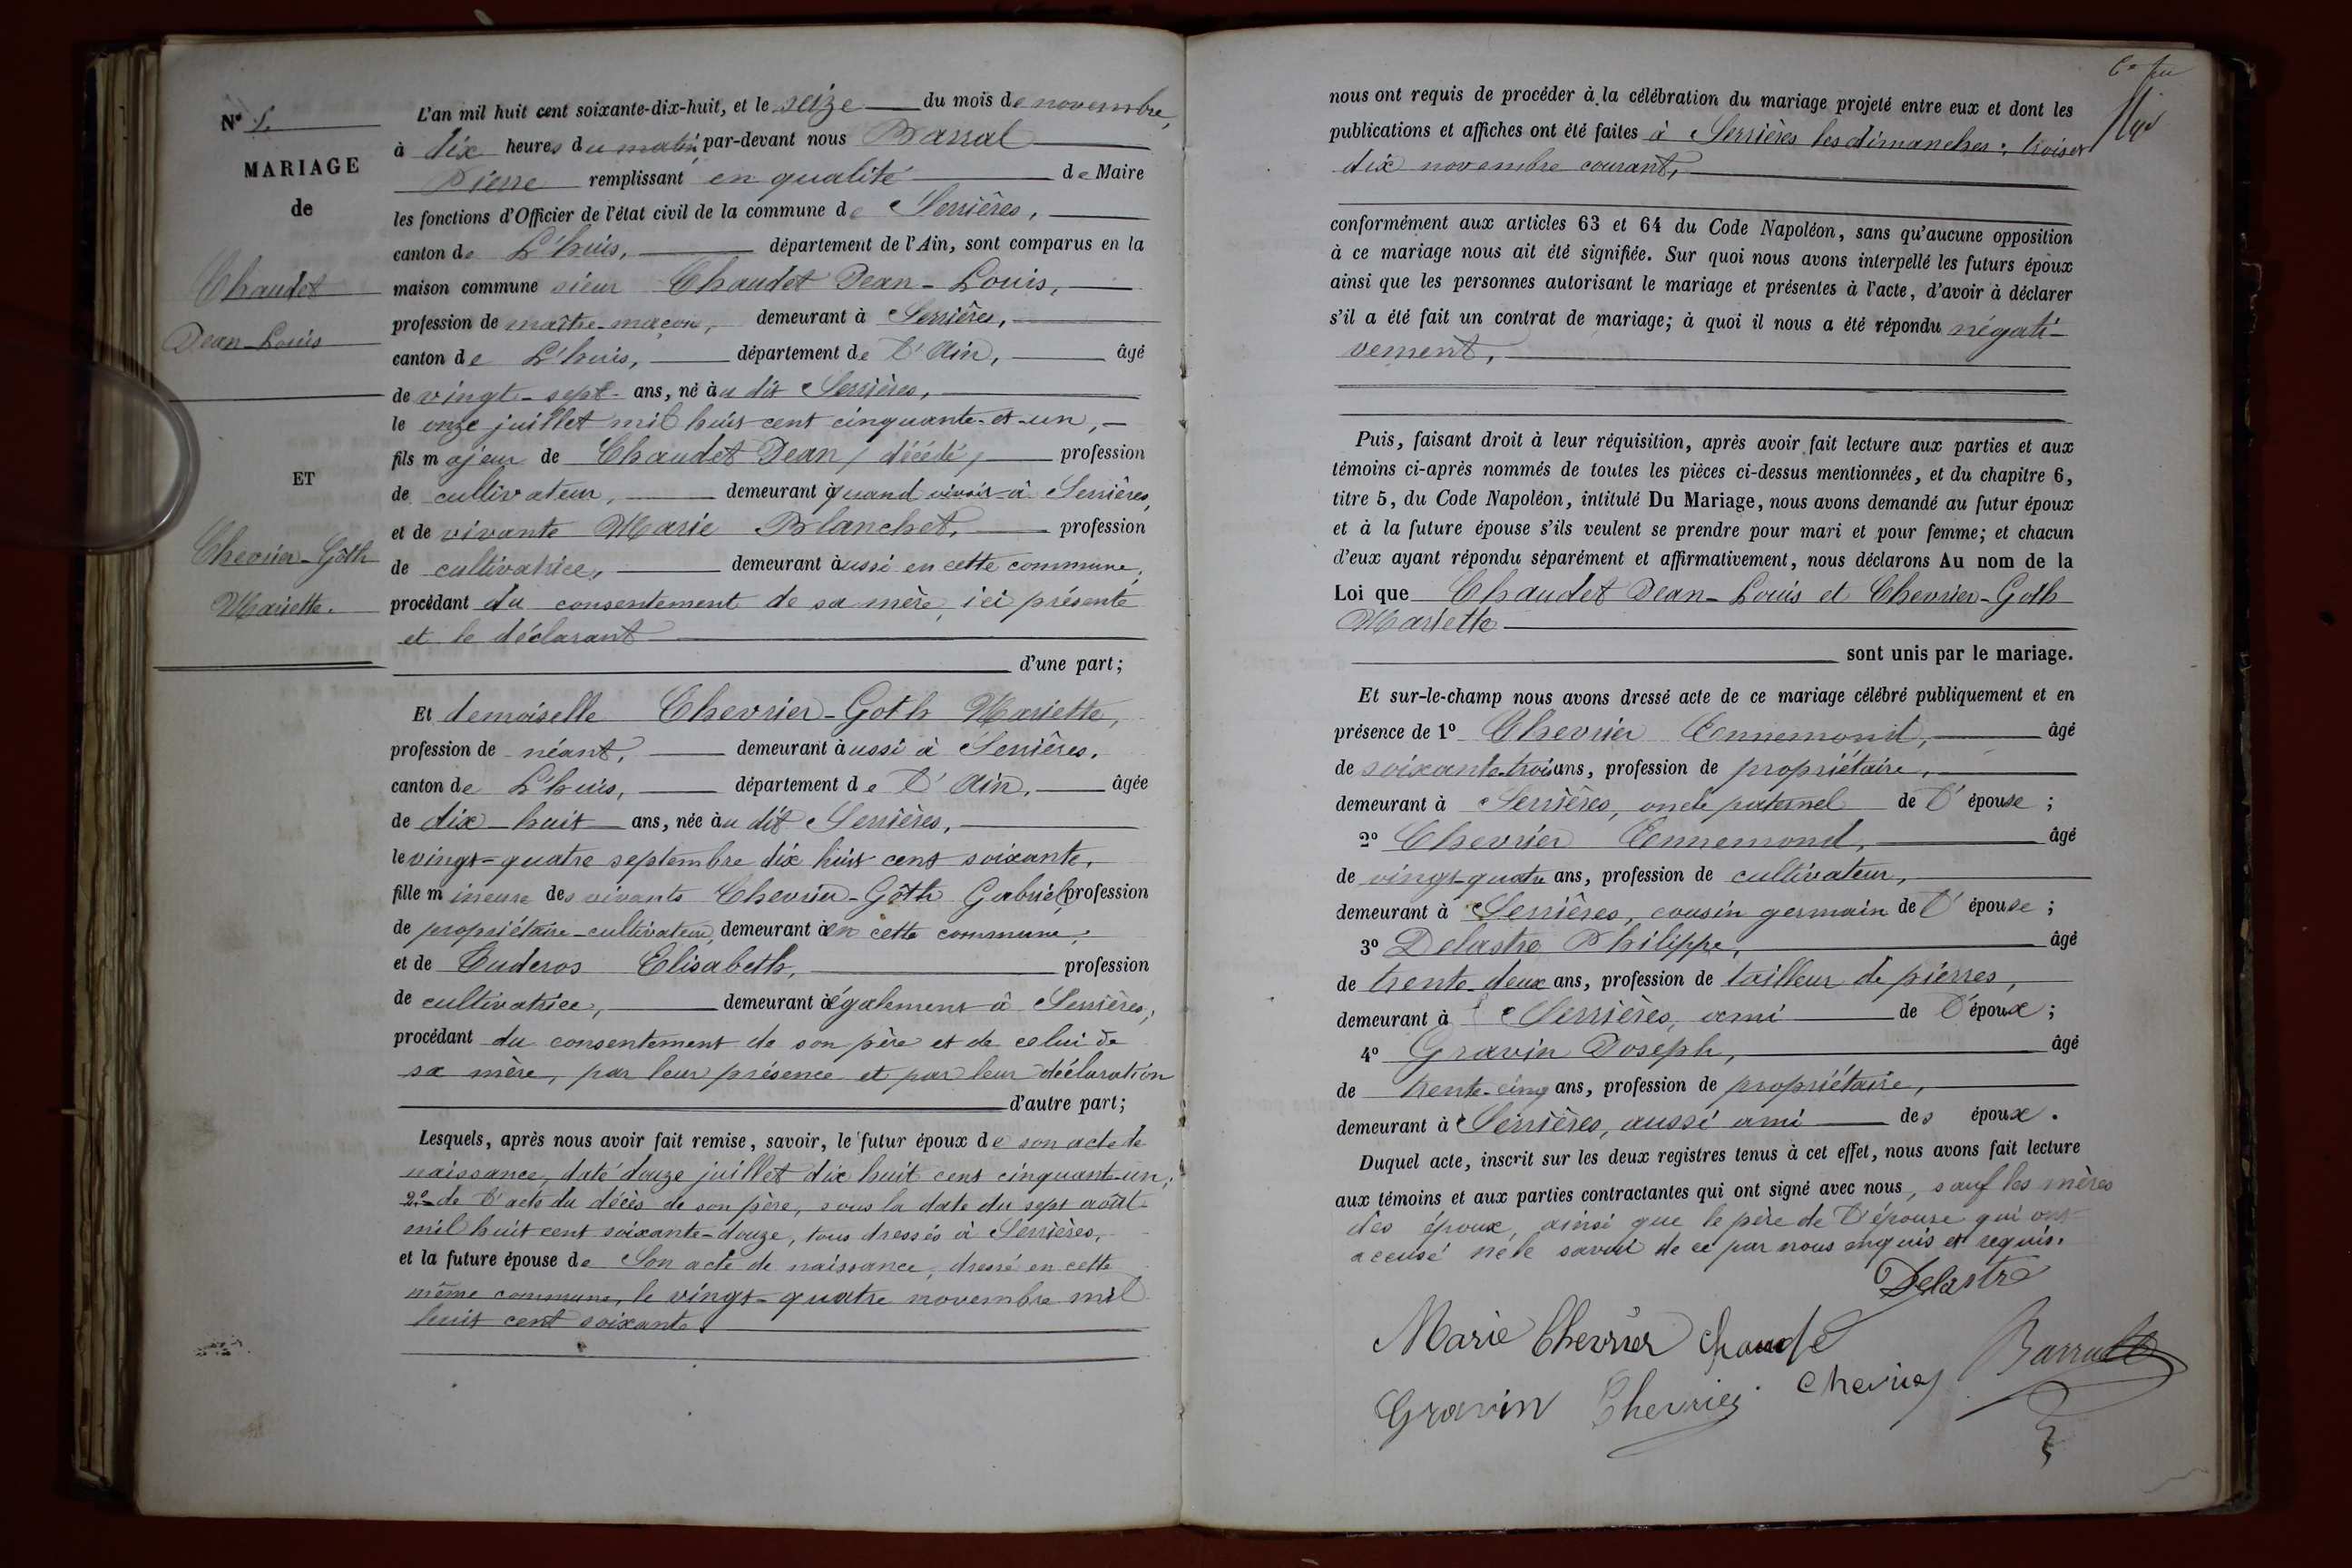 N° 5.
MARIAGE
de
Chaudet
Jean-Louis
ET
Chevrier-Goth
Mariette.
L'an mil huit cent soixante-dix-huit, et le seize du mois de novembre,
à dix heures du matin, par-devant nous Barral
Pierre remplissant en qualité de Maire
les fonctions d'Officier de l'état civil de la commune de Serrières,
canton de L'huis, département de l'Ain, sont comparus en la
maison commune sieur Chaudet Jean-Louis,
profession de maître-maçon, demeurant à Serrières,
canton de L'huis, département de l'Ain, âgé
de vingt-sept ans, né au dit Serrières,
le onze juillet mil huit cent cinquante-et-un,
fils majeur de Chaudet Jean, décédé, profession
de cultivateur, demeurant à quand vivait à Serrières,
et de vivante Marie Blanchet, profession
de cultivatrice, demeurant aussi en cette commune,
procédant du consentement de sa mère, ici présente
et le déclarant
d'une part;
Et demoiselle Chevrier-Goth Mariette,
profession de néant, demeurant aussi à Serrières,
canton de L'huis, département de l'Ain, âgée
de dix-huit ans, née au dit Serrières,
le vingt-quatre septembre dix huit cent soixante,
fille mineure des vivants Chevrier-Gôth Gabriel, profession
de propriétaire-cultivateur, demeurant à en cette commune,
et de Tuderos Elisabeth, profession
de cultivatrice, demeurant à également à Serrières,
procédant du consentement de son père et de celui de
sa mère, par leur présence et par leur déclaration
d'autre part;
Lesquels, après nous avoir fait remise, savoir, le futur époux de son acte de
naissance, daté douze juillet dix huit cent cinquant-un,
2° de l'acte du décès de son père, sous la date du sept août
mil huit cent soixante-douze, tous dressés à Serrières,
et la future épouse de Son acte de naissance, dressé en cette
même commune, le vingt-quatre novembre mil
huit cent soixante.
nous ont requis de procéder à la célébration du mariage projeté entre eux et dont les
publications et affiches ont été faites à Serrières les dimanches: trois et
dix novembre courant,
conformément aux articles 63 et 64 du Code Napoléon, sans qu'aucune opposition
à ce mariage nous ait été signifiée. Sur quoi nous avons interpellé les futurs époux
ainsi que les personnes autorisant le mariage et présentes à l'acte, d'avoir à déclarer
s'il a été fait un contrat de mariage; à quoi il nous a été répondu négati-
vement,
Puis, faisant droit à leur réquisition, après avoir fait lecture aux parties et aux
témoins ci-après nommés de toutes les pièces ci-dessus mentionnées, et du chapitre 6,
titre 5, du Code Napoléon, intitulé Du Mariage, nous avons demandé au futur époux
et à la future épouse s'ils veulent se prendre pour mari et pour femme; et chacun
d'eux ayant répondu séparément et affirmativement, nous déclarons Au nom de la
Loi que Chaudet Jean-Louis et Chevrier-Goth
Mariette
sont unis par le mariage.
Et sur-le-champ nous avons dressé acte de ce mariage célébré publiquement et en
présence de 1° Chevrier Ennemond, âgé
de soixante-trois ans, profession de propriétaire,
demeurant à Serrières, oncle paternel de l'épouse;
2° Chevrier Ennemond, âgé
de vingt-quatre ans, profession de cultivateur,
demeurant à Serrières, cousin germain de l'épouse;
3° Delastre Philippe, âgé
de trente-deux ans, profession de tailleur de pierres,
demeurant à Serrières, ami de l'époux;
4° Gravin Joseph, âgé
de trente-cinq ans, profession de propriétaire,
demeurant à Serrières, aussi ami des époux.
Duquel acte, inscrit sur les deux registres tenus à cet effet, nous avons fait lecture
aux témoins et aux parties contractantes qui ont signé avec nous, sauf les mères
des époux, ainsi que le père de l'épouse qui ont
accusé ne le savoir de ce par nous enquis et requis.
Delastre
Marie Chevrier Chaudet
Barral
Gravin Chevrier Chevrier